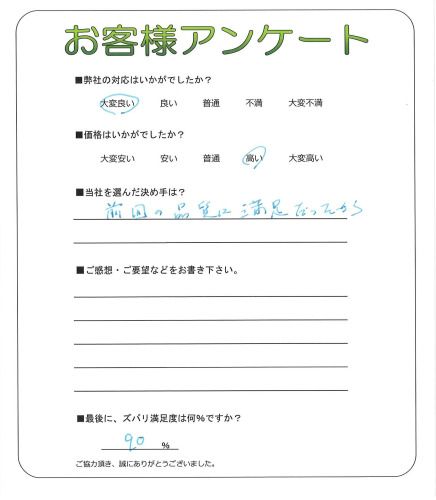 お客様アンケート
■弊社の対応はいかがでしたか？
大変良い 良い 普通 不満 大変不満
■価格はいかがでしたか？
大変安い 安い 普通 高い 大変高い
■当社を選んだ決め手は？
前回の品質に満足だったから
■ご感想・ご要望などをお書き下さい。
■最後に、ズバリ満足度は何%ですか？
90 %
ご協力頂き、誠にありがとうございました。